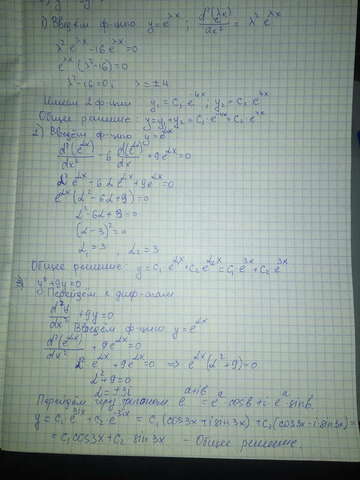 1) Введём ф-цию y=e^λx ; d²(e^λx)/dx² = λ² e^λx
λ² e^λx -16 e^λx =0
e^λx (λ²-16)=0
λ²-16=0, λ=±4
Имеем 2 ф-ции y₁=C₁e^4x ; y₂=C₂e^4x
Общее решение: y=y₁+y₂=C₁e^4x+C₂e^
2) Введём ф-цию y=e^αx
d²(e^αx)/dx² -6 d(e^αx)/dx +9e^αx=0
α² e^αx -6αe^αx +9e^αx=0
e^αx(α²-6α+9)=0
α²-6α+9=0
(α-3)²=0
α₁=3, α₂=3
Общее решение y=C₁e^αx+C₂e^α₂x=C₁e^3x+C₂e^3x
3) y''+9y=0
Перейдём к диф-лам
d²y/dx² +9y=0
Введём ф-цию y=e^αx
d²(e^αx)/dx² +9e^αx=0
α² e^αx+9e^αx=0 => e^αx(α²+9)=0
α²+9=0
α=±3i
Перейдём e^a+ib = e^a cosb+i e^a sinb.
y=C₁e^3ix+C₂e^-3ix = C₁(cos3x+isin3x)+C₂(cos3x-i sin3x)=
=C₁cos3x+C₂ sin3x - Общее решение.